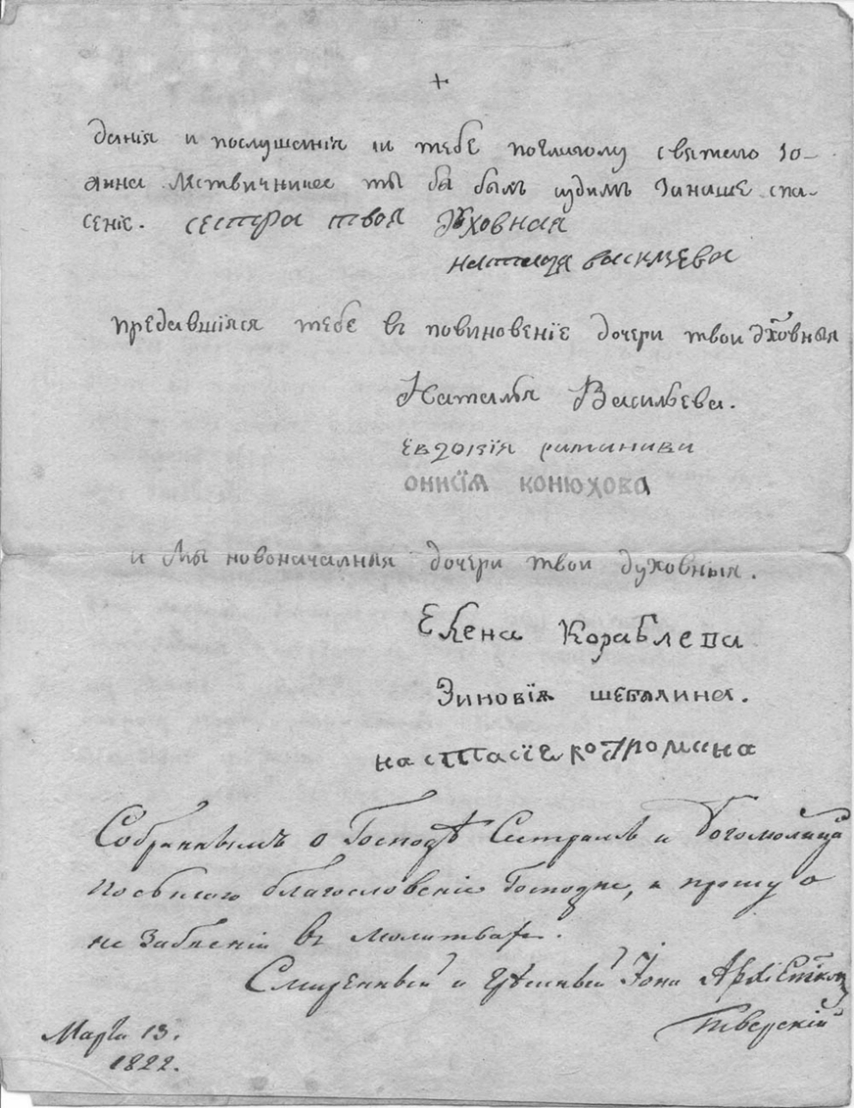 +
дания и послушания и тебе по
святаго Іо-
анна Лѣствичника ты ба за наше спа-
сеніе. сестра твоя дховная
васильева
предавшіяся тебе въ повиновеніе дочери твои дховныя
Наталья Васильева.
Евдокія
онисія конюхова
и Мы новоначалныя дочери твои духовныя.
Елена Кораблева
Зиновія шебалина.
настасіе костромина
Собраннымъ о Господѣ Сестрамъ и Богомолица
Посылаю благословеніе Господне, и прошу о
не забвеніи въ молитвахъ.
Смиренный и грѣшный Іона Архіепкоп
Тверскій
Марта 13.
1822.